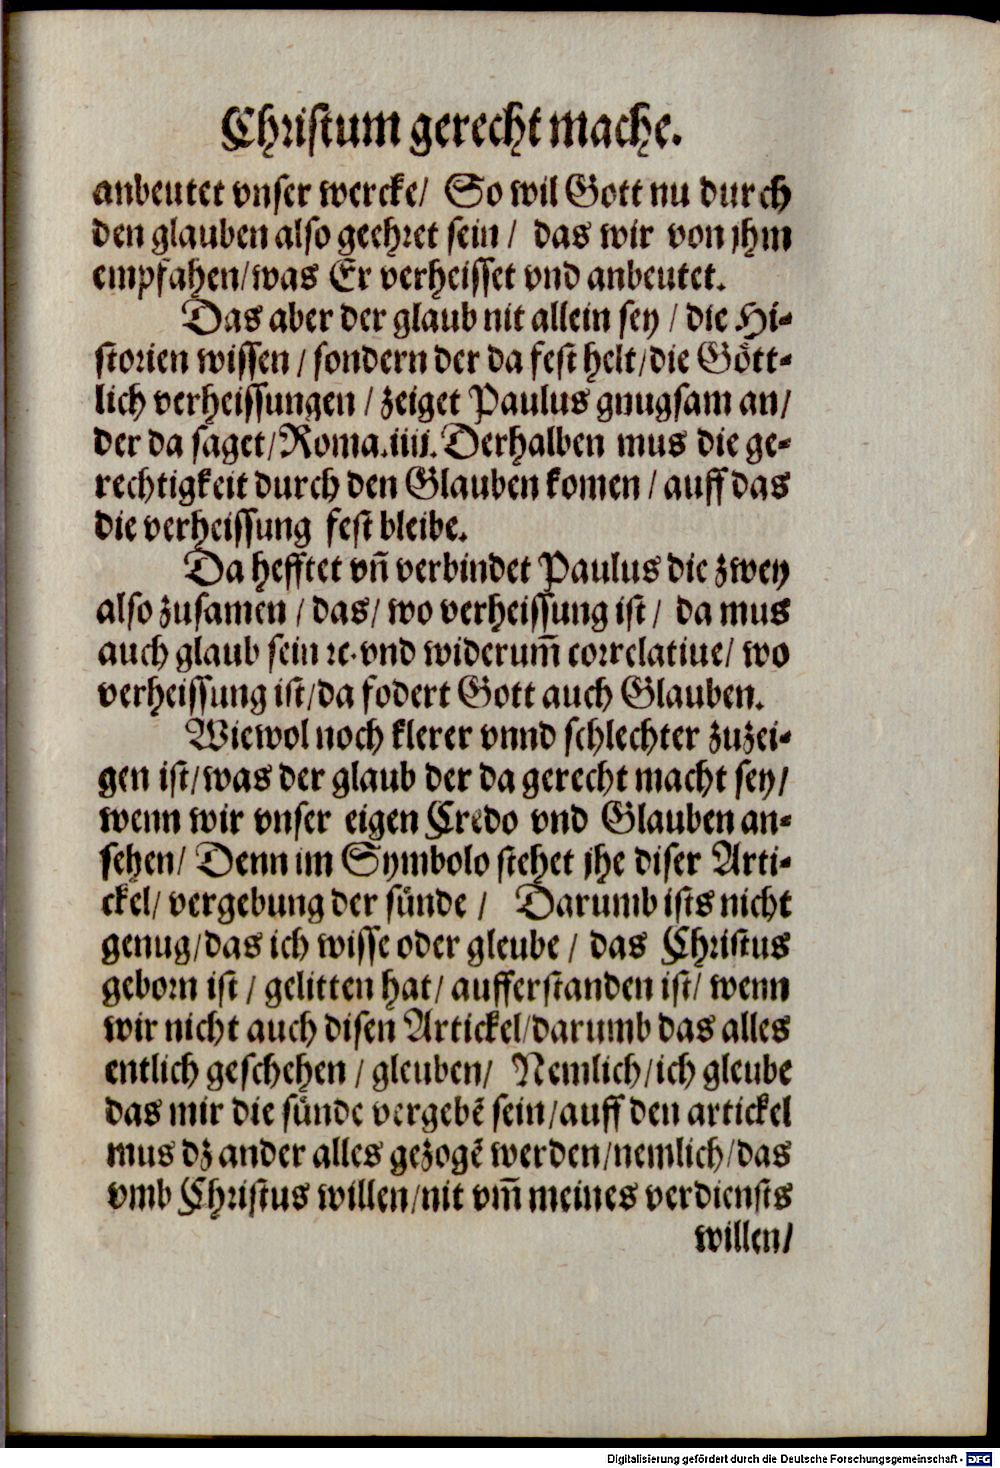 Christum gerecht mache.
anbeutet vnser wercke/ So wil Gott nu durch
den glauben also geehret sein / das wir von jhm
empfahen/was Er verheisset vnd anbeutet.
Das aber der glaub nit allein sey / die Hi-
storien wissen / sondern der da fest helt/die Gött-
lich verheissungen / zeiget Paulus gnugsam an/
der da saget/Roma.iiij. Derhalben mus die ge-
rechtigkeit durch den Glauben komen / auff das
die verheissung fest bleibe.
Da hefftet vn̄ verbindet Paulus die zwey
also zusamen / das/ wo verheissung ist / da mus
auch glaub sein ꝛc. vnd widerum̄ correlatiue/ wo
verheissung ist/da fodert Gott auch Glauben.
Wiewol noch klerer vnnd schlechter zuzei-
gen ist/was der glaub der da gerecht macht sey/
wenn wir vnser eigen Credo vnd Glauben an-
sehen/ Denn im Symbolo stehet jhe diser Arti-
ckel/ vergebung der sünde / Darumb ists nicht
genug/das ich wisse oder gleube / das Christus
geborn ist / gelitten hat/ aufferstanden ist/ wenn
wir nicht auch disen Artickel/darumb das alles
entlich geschehen / gleuben/ Nemlich/ich gleube
das mir die sünde vergebē sein/auff den artickel
mus dz ander alles gezogē werden/nemlich/das
vmb Christus willen/nit vm̄ meines verdiensts
willen/
Digitalisierung gefördert durch die Deutsche Forschungsgemeinschaft - DFG